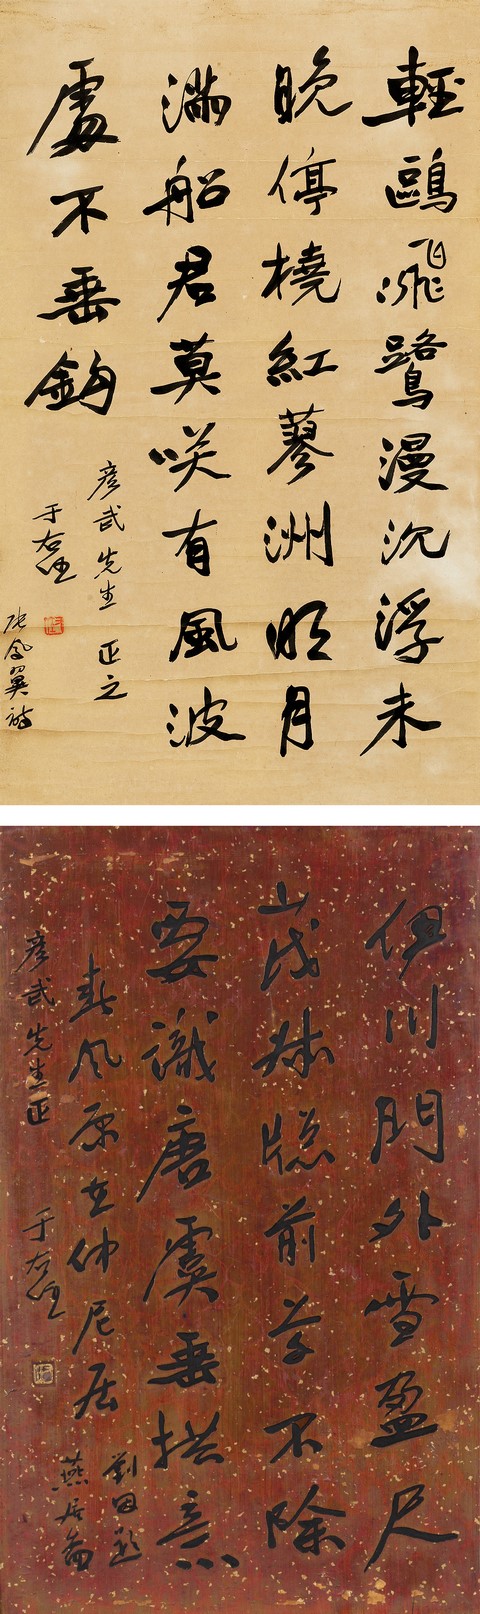 輕鷗飛鷺漫沉浮未
晚停橈紅蓼洲明月
滿船君莫咲有風波
處不垂鉤
彥武先生正之
于右任
張鳳翼詩
伊川門外雪盈尺
茂叔牕前草不除
要識唐虞垂拱意
春風原在仲尼居
劉因題
燕居圖
彥武先生正
于右任